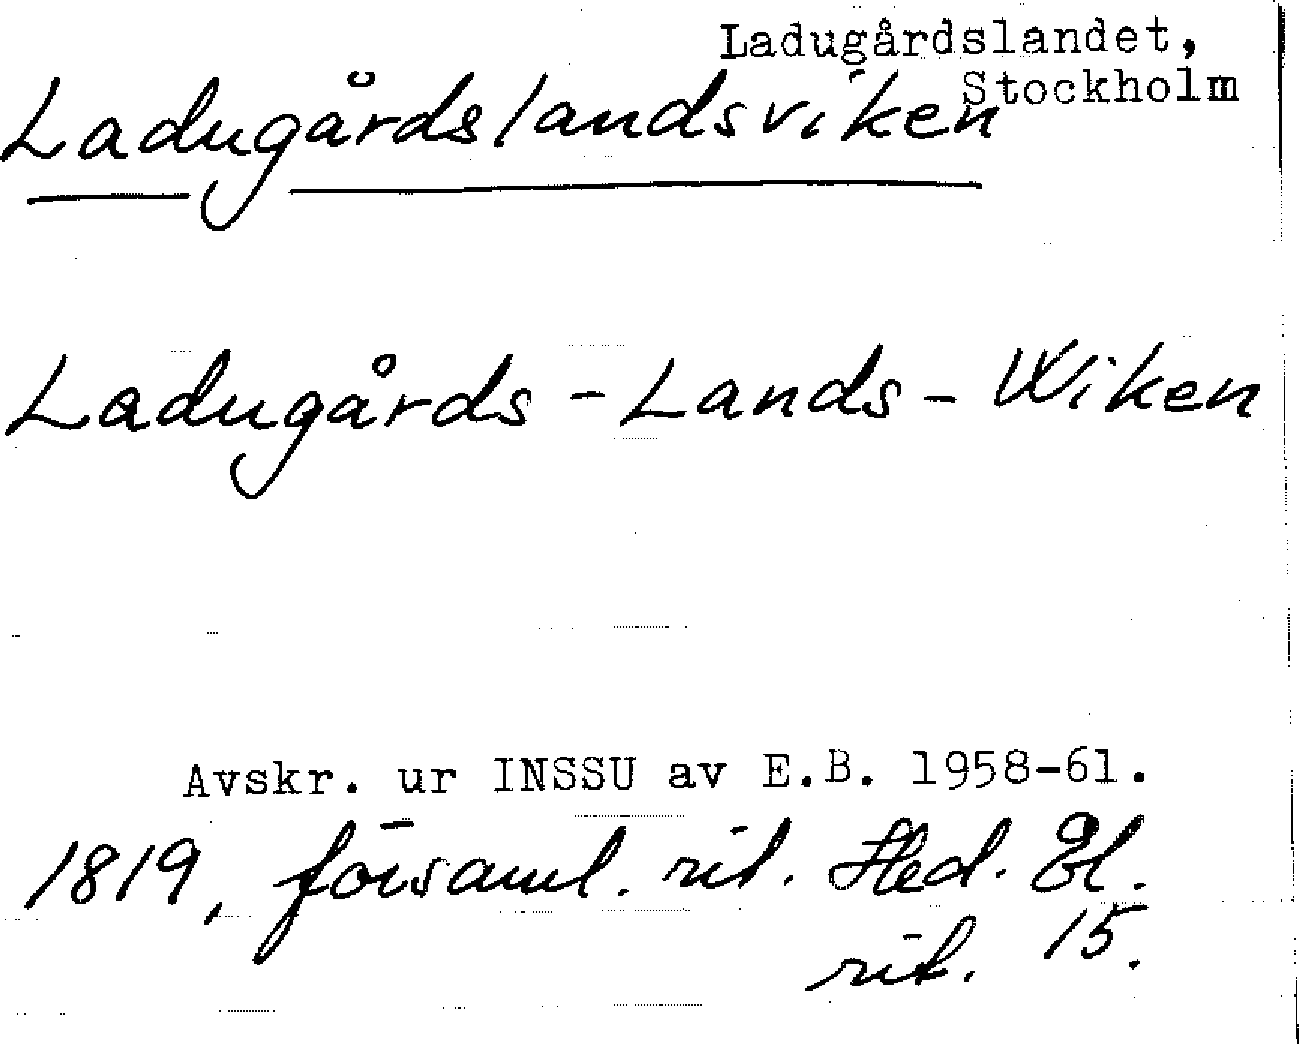 Ladugårdslandet,
Stockholm
Ladugårdslandsviken
Ladugårds-Lands-Wiken
Avskr. ur INSSU av E.B. 1958-61.
1819, församl. rit. Hed. El.
rit. 15.